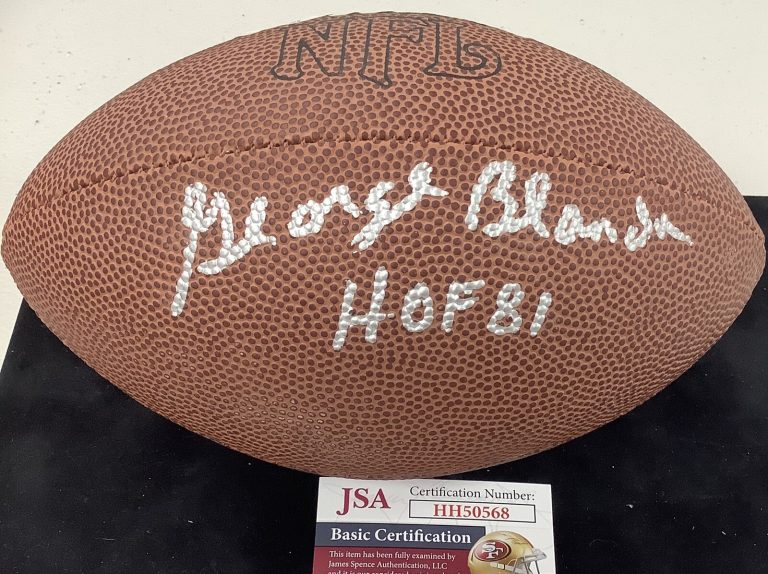 NFL
George Blanda
HOF 81
JSA
Certification Number:
HH50568
Basic Certification
This item has been fully examined by
James Spence Authentication, LLC
and it is our considered
SF